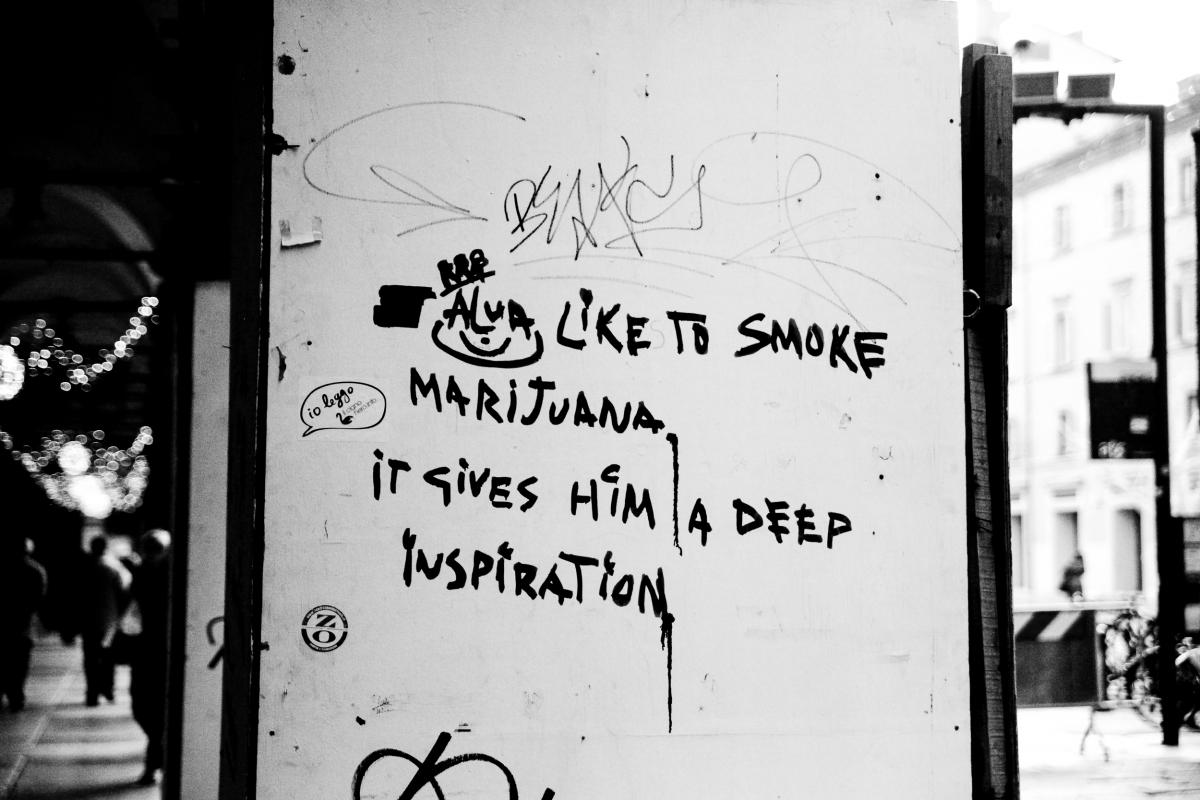 ALUA LiKE TO SMOKE
MARiJUANA
io leggo
iT GiVES HiM A DEEP
iNSPiRATiON
ZO